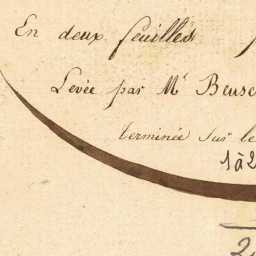 En deux feuilles
Levée par Mr
terminée sur le
1 à 2